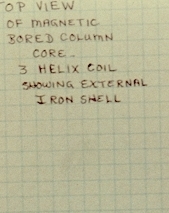 TOP VIEW
OF MAGNETIC
BORED COLUMN
CORE -
3 HELIX COIL
SHOWING EXTERNAL
IRON SHELL